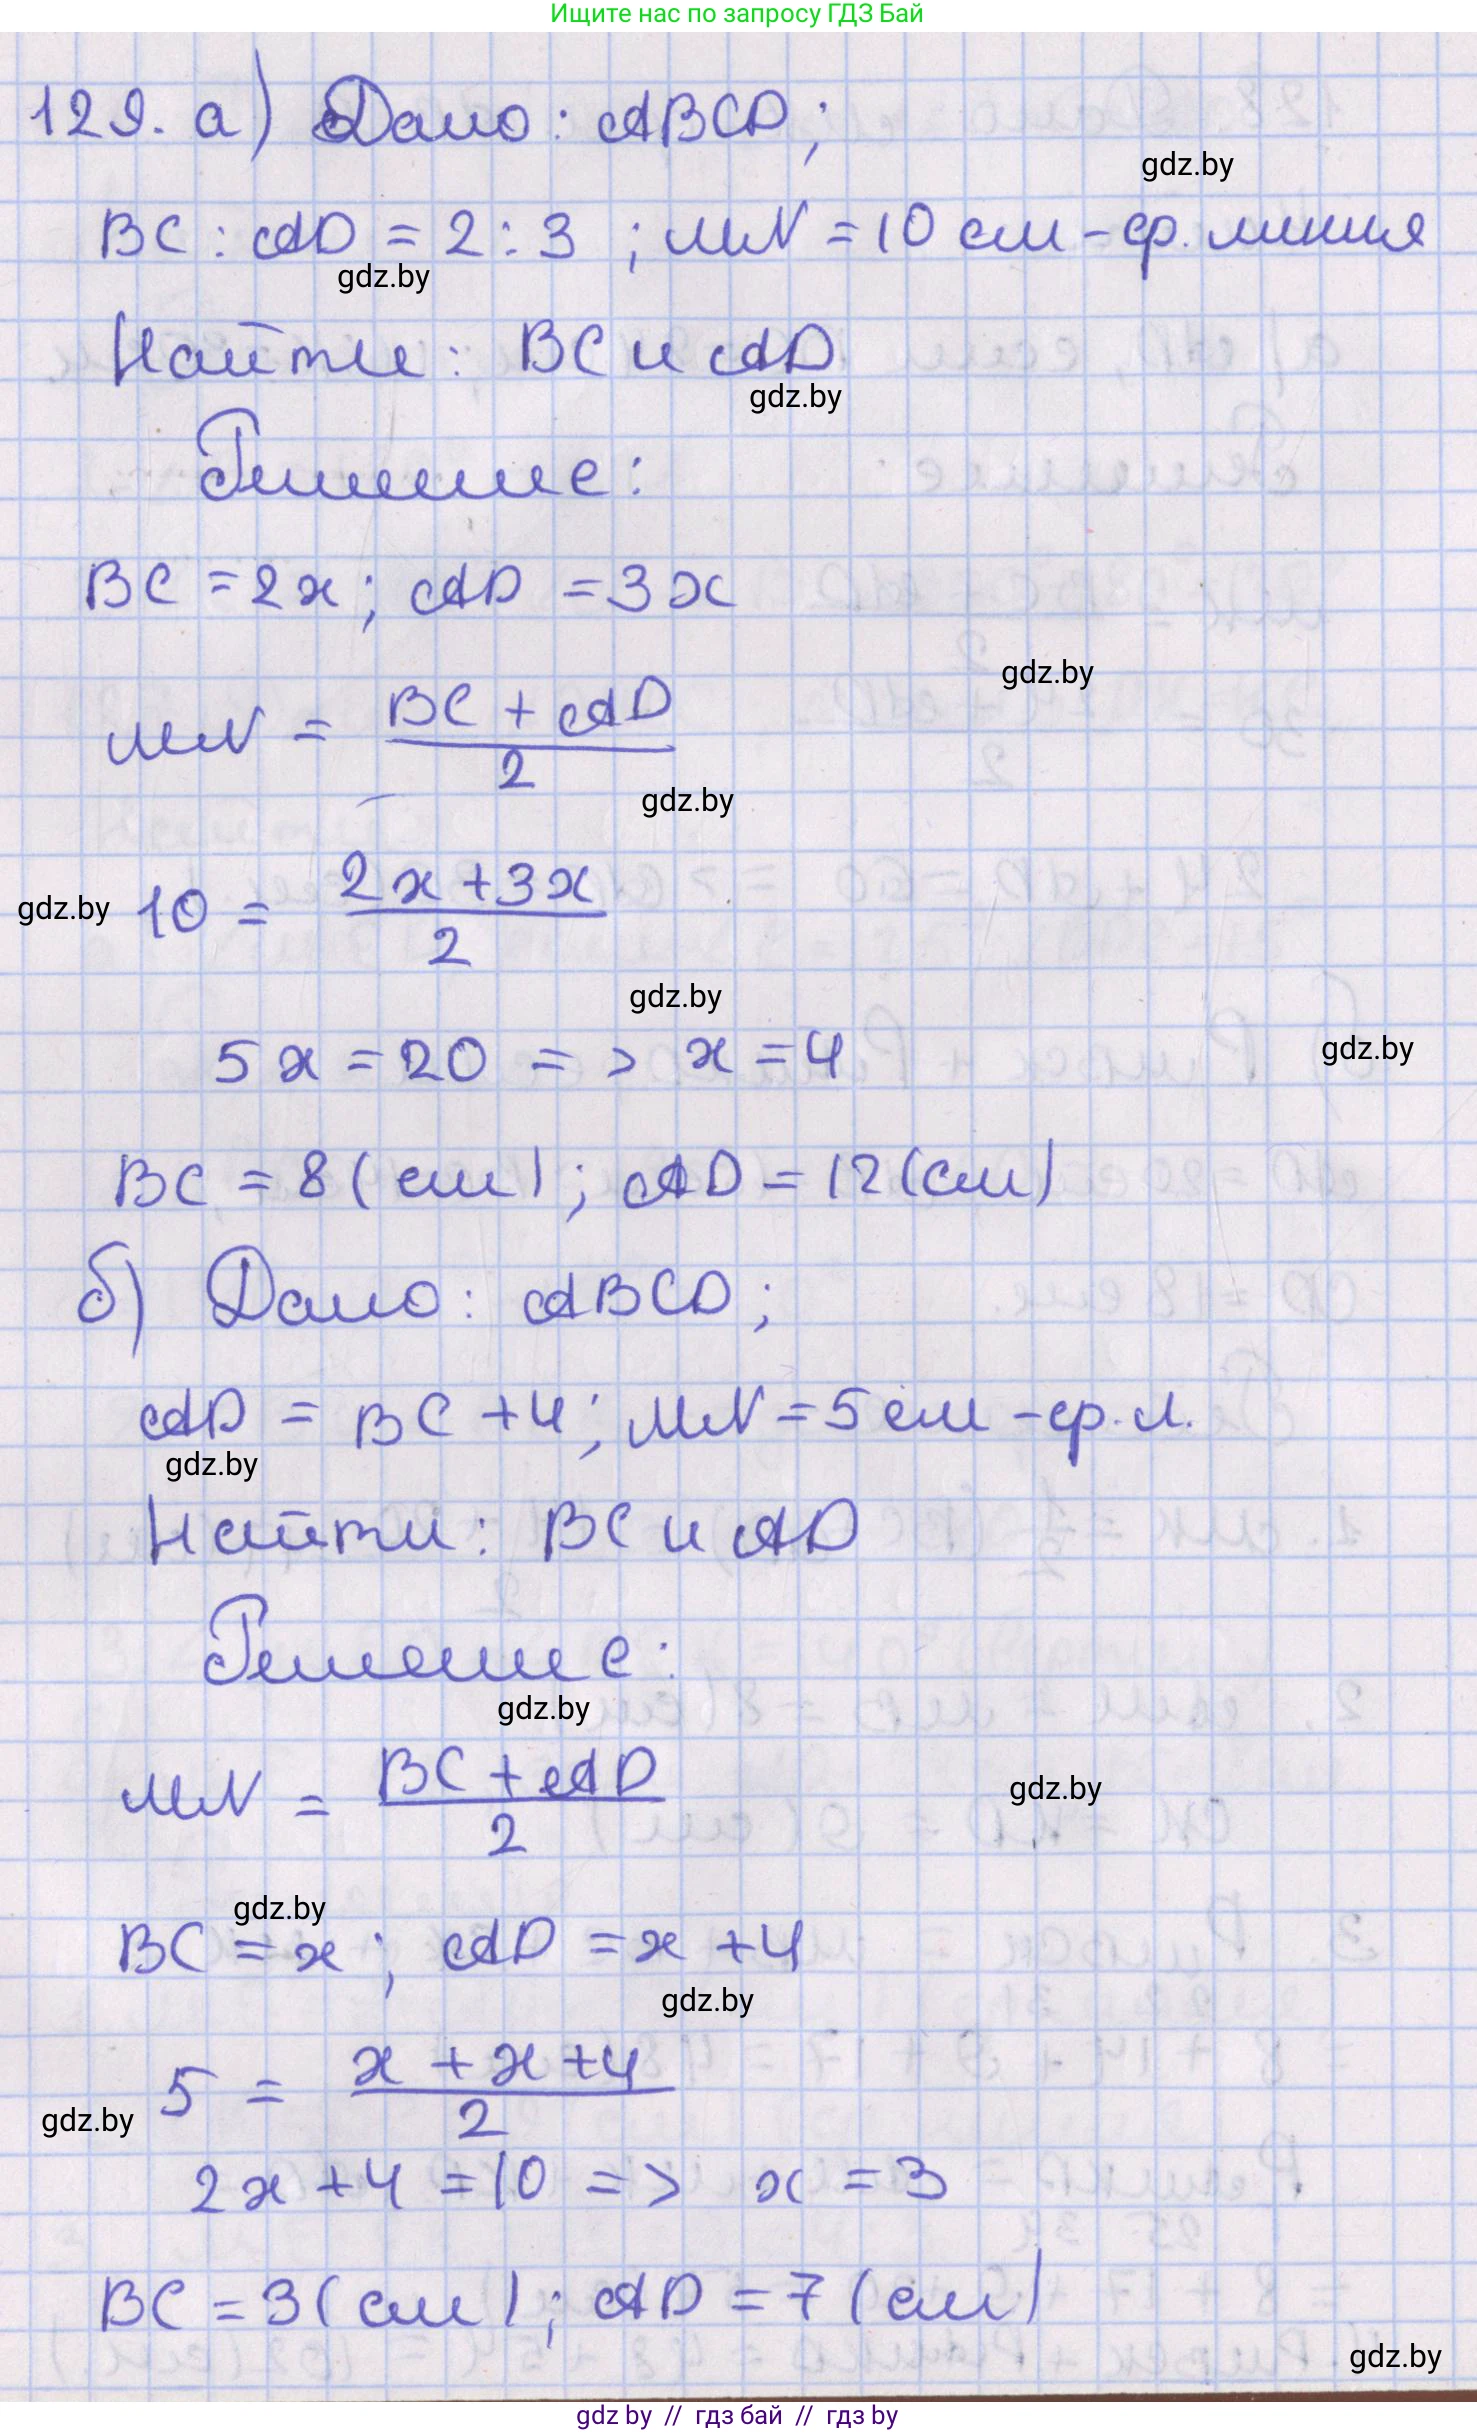 Ищите нас по запросу ГДЗ Бай
129. а) Дано: ABCD;
gdz.by
BC : AD = 2 : 3 ; MN = 10 см - ср. линия
gdz.by
Найти: BC и AD
gdz.by
Решение:
BC = 2x; AD = 3x
gdz.by
MN = (BC + AD)/2
gdz.by
gdz.by
10 = (2x + 3x)/2
gdz.by
5x = 20 => x = 4
gdz.by
BC = 8 (см); AD = 12 (см)
б) Дано: ABCD;
AD = BC + 4; MN = 5 см - ср. л.
gdz.by
Найти: BC и AD
Решение:
gdz.by
MN = (BC + AD)/2
gdz.by
gdz.by
BC = x; AD = x + 4
gdz.by
5 = (x + x + 4)/2
gdz.by
2x + 4 = 10 => x = 3
BC = 3 (см); AD = 7 (см)
gdz.by
gdz by // гдз бай // гдз by